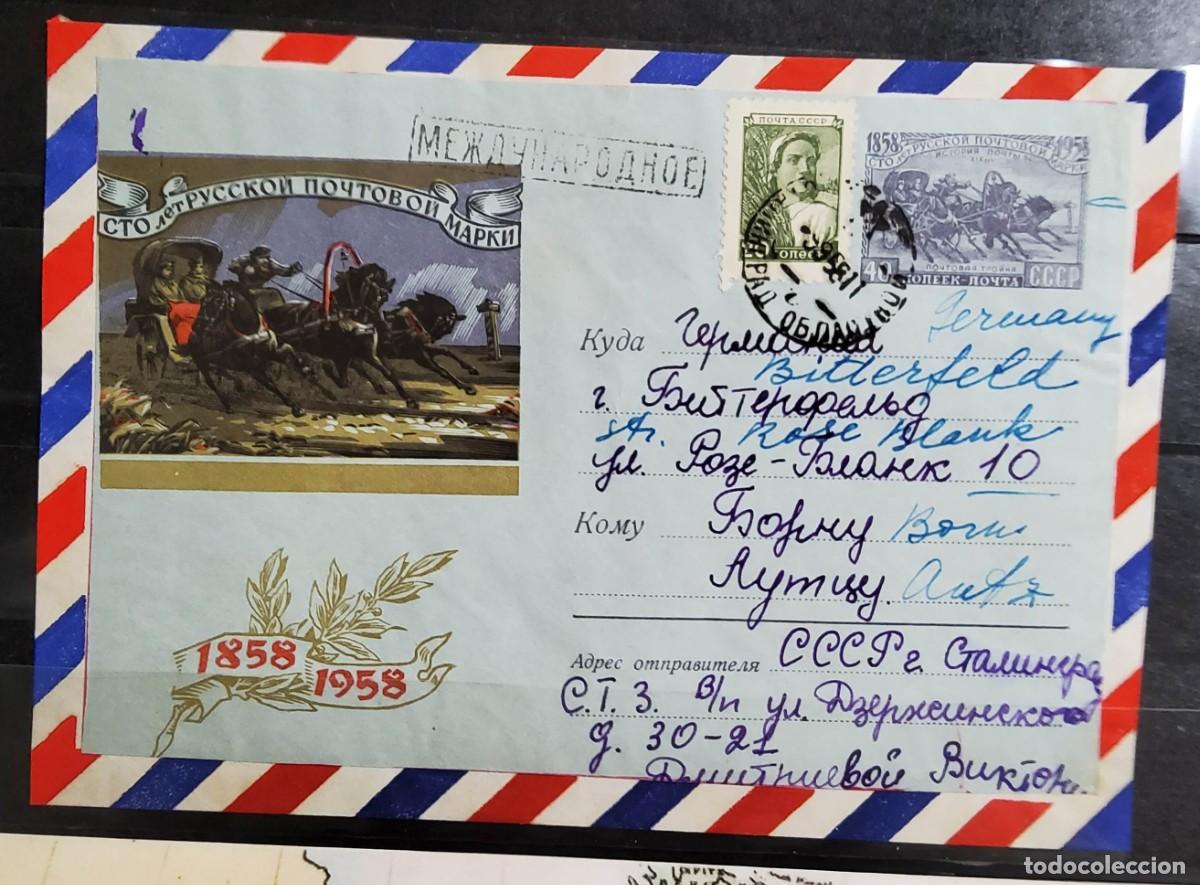 МЕЖДУНАРОДНОЕ
СТО лет РУССКОЙ ПОЧТОВОЙ МАРКИ
ПОЧТА СССР
1858 1958
СТО лет РУССКОЙ ПОЧТОВОЙ МАРКИ
ИСТОРИЯ ПОЧТЫ
ПОЧТОВАЯ ТРОЙКА
40 КОПЕЕК-ПОЧТА СССР
Germany
Куда Германия
Bitterfeld
г. Биттерфельд
str. Rose Blank
ул. Розе-Бланк 10
Кому Борну Born
Лутцу.
1858
1958
Адрес отправителя СССР г. Сталинград
С.Т.З. В/п ул. Дзержинского
д. 30-21
Дмитриевой
todocoleccion